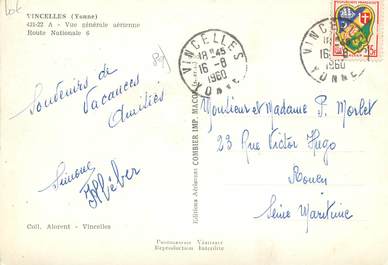 lot
VINCELLES (Yonne)
431-22 A - Vue générale aérienne
Route Nationale 6
89
Souvenirs de
Vacances
Amitiés
Simone
Coll. Alorent - Vincelles
Editions Aériennes COMBIER IMP. MACON
VINCELLES
18H45
16-8
1960
YONNE
VINCELLES
18H45
16-8
1960
YONNE
Monsieur et Madame P. Morlet
23 Rue Victor Hugo
Rouen
Seine Maritime
Reproduction Interdite